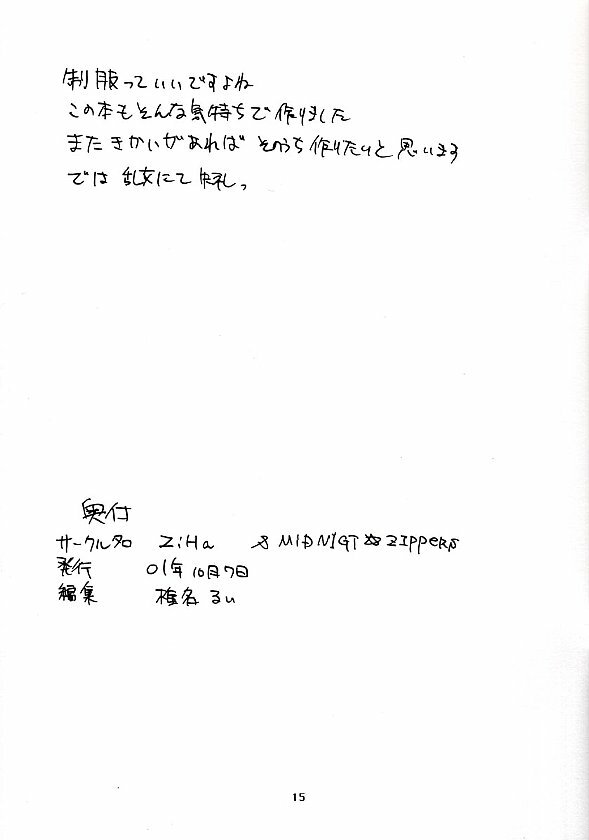 制服っていいですよね
この本もそんな気持ちで作りました
またきかいがあれば そのうち作りたいと思います
では 乱文にて 失礼。
奥付
サークル名 ZiHa & MIDNIGT☆ZIppeRS
発行 01年10月7日
編集 椎名 るい
15